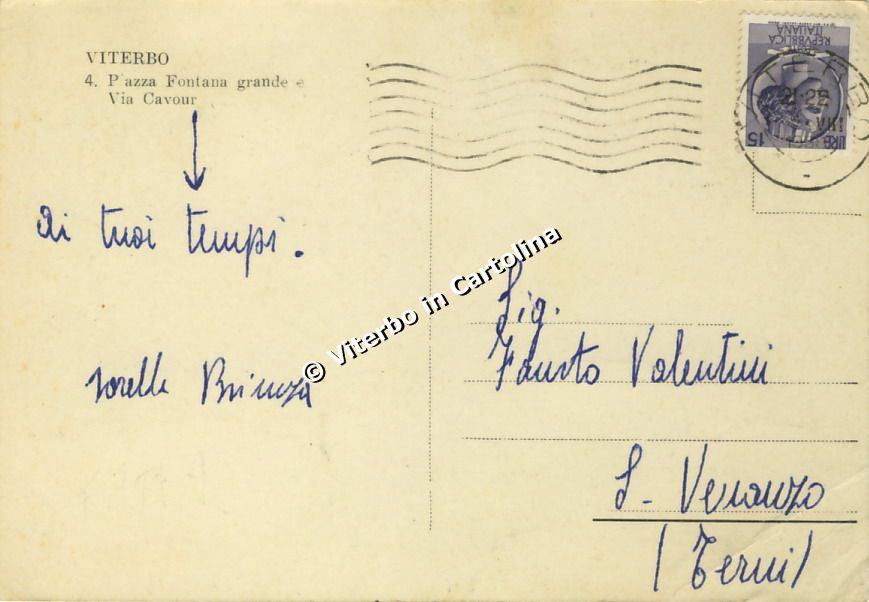 VITERBO
4. P azza Fontana grande e
Via Cavour
ai tuoi tempi.
sorelle
© Viterbo in Cartolina
REPVBBLICA
ITALIANA
LIRE 15
VITERBO
21-22
VIII
Sig.
Fausto Valentini
S. Venanzo
(Terni)